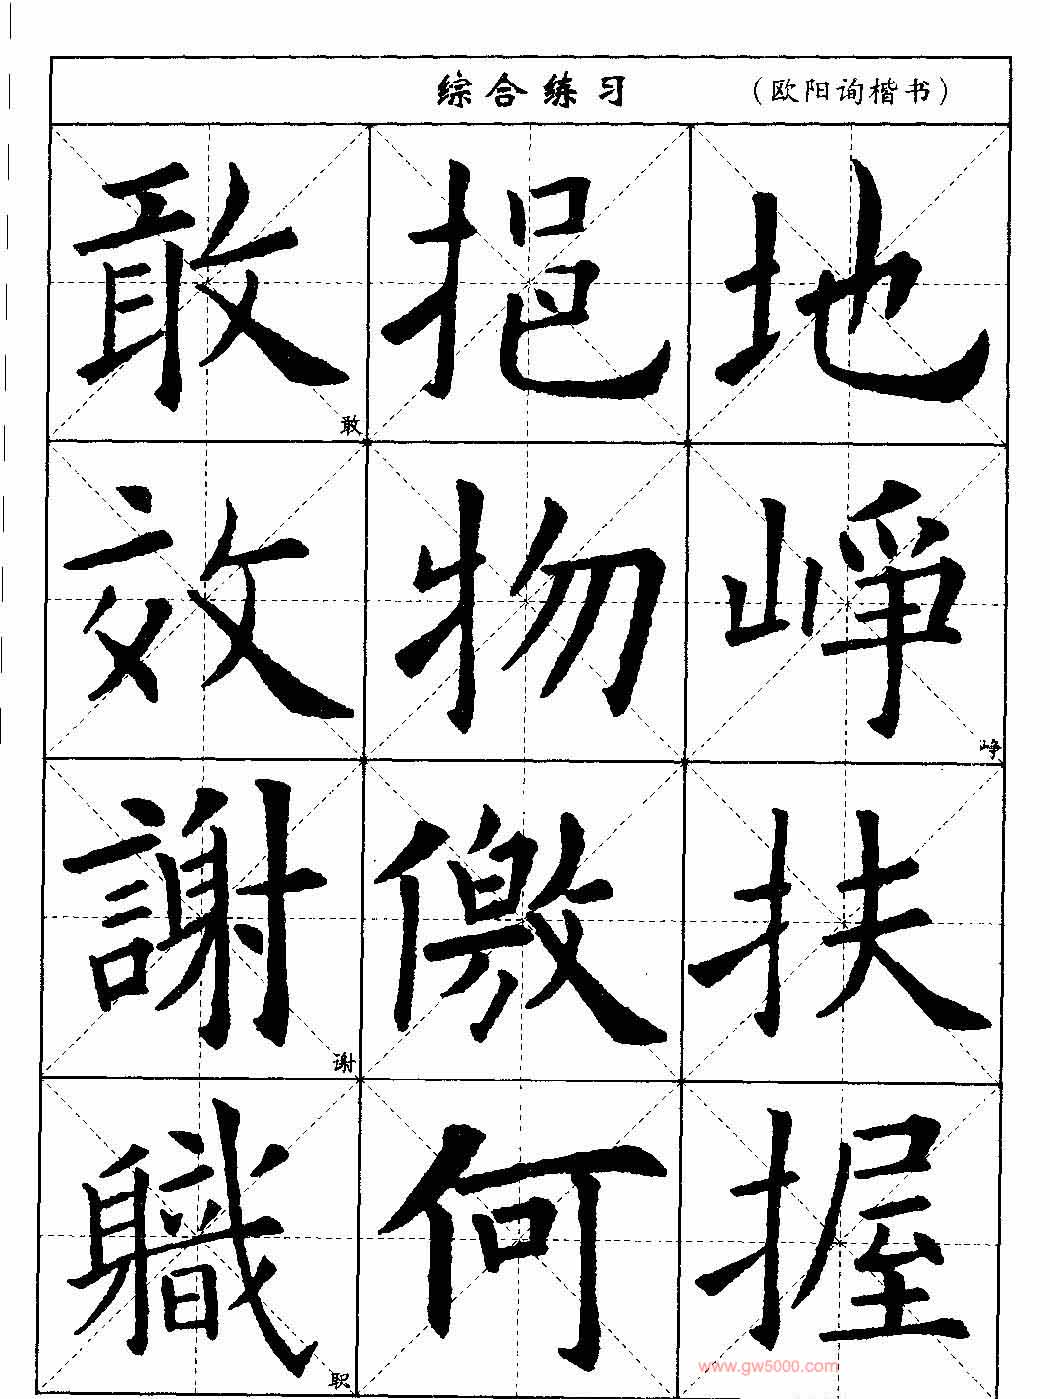 综合练习 （欧阳询楷书）
敢 挹 地
敢
效 物 峥
峥
謝 儌 扶
谢
職 何 握
职
www.gw5000.com